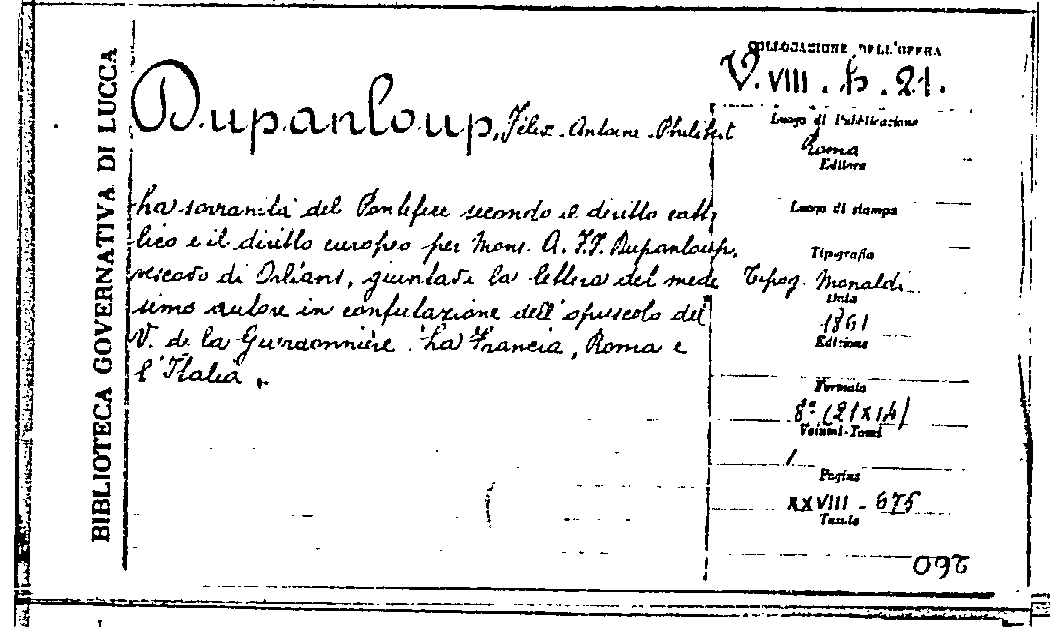 BIBLIOTECA GOVERNATIVA DI LUCCA
Dupanloup, Félix-Antoine-Philibert
La sovranità del Pontefice secondo il diritto catt,
lico e il diritto europeo per Mons. A. F. F. Dupanloup,
vescovo di Orléans, giuntavi la lettera del mede
simo autore in confutazione dell'opuscolo del
V. de la Guerdonnière. La Francia, Roma e
l'Italia.
COLLOCAZIONE DELL'OPERA
V. VIII. b. 21.
Luogo di Pubblicazione
Roma
Editore
Luogo di stampa
Tipografia
Tipog. Monaldi
Data
1861
Edizione
Formato
8° (21x14)
Volumi-Tomi
1
Pagine
XXVIII - 675
Tavole
260